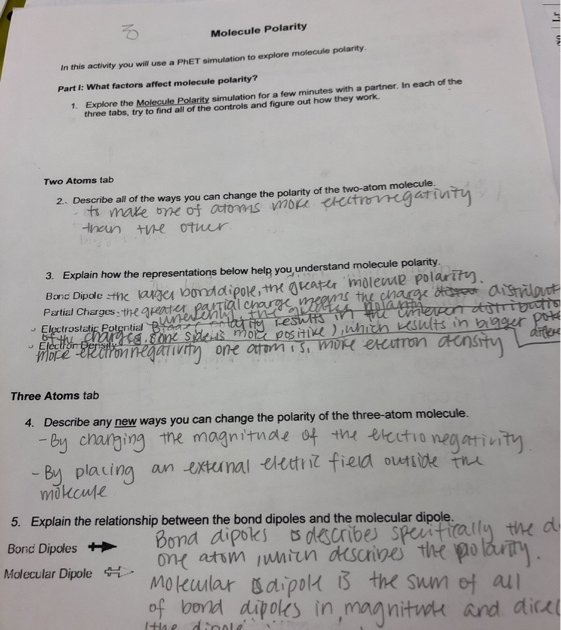 Molecule Polarity
In this activity you will use a PhET simulation to explore molecule polarity.
Part I: What factors affect molecule polarity?
1. Explore the Molecule Polarity simulation for a few minutes with a partner. In each of the
three tabs, try to find all of the controls and figure out how they work.
Two Atoms tab
2. Describe all of the ways you can change the polarity of the two-atom molecule.
- to make one of atoms more electronegativity
than the other
3. Explain how the representations below help you understand molecule polarity.
Bond Dipole - the larger bond dipole, the greater molecule polarity.
Partial Charges - the greater partial charge means the charge
unevenly, the greater polarity
Electrostatic Potential results in the uneven
of the charges (one side is more positive), which results in bigger
Electron Density
more electronnegativity one atom is, more electron density
Three Atoms tab
4. Describe any new ways you can change the polarity of the three-atom molecule.
- By changing the magnitude of the electronegativity
- By placing an external electric field outside the
molecule
5. Explain the relationship between the bond dipoles and the molecular dipole.
Bond Dipoles
Bond dipoles describes specifically the
one atom, which describes the polarity.
Molecular Dipole
Molecular dipole is the sum of all
of bond dipoles in magnitude and
(the dipole